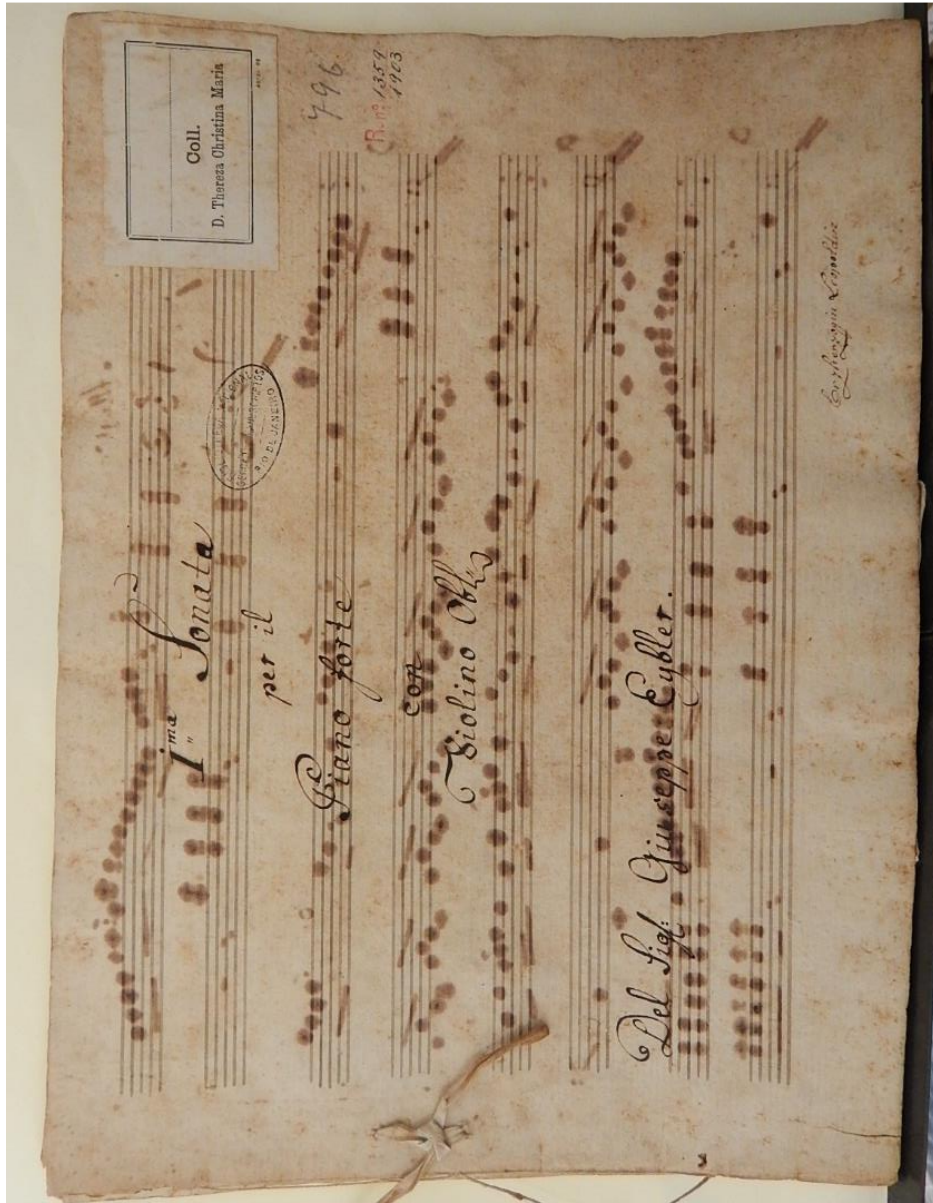 Coll.
D. Thereza Christina Maria
796
R. nº 1359
1903
1ma Sonata
per il
Piano forte
con
Violino Obl:
Del Sigl: Giuseppe Eybler.
Erzherzogin Leopoldine
RIO DE JANEIRO